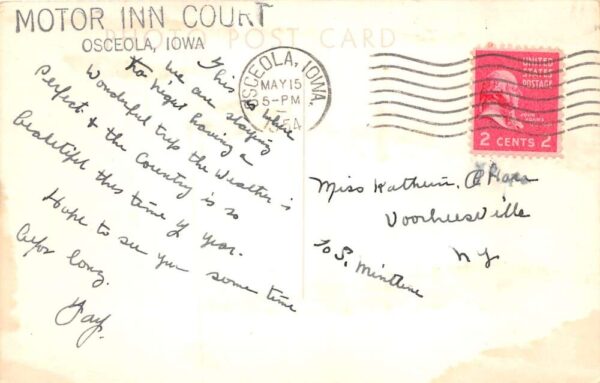 MOTOR INN COURT
OSCEOLA, IOWA
PHOTO POST CARD
This is where
we are staying
to night having a
Wonderful trip the Weather is
Perfect & the Country is so
beautiful this time of year.
Hope to see you some time
befor long.
Fay.
OSCEOLA, IOWA.
MAY 15
5-PM
1954
UNITED
STATES
POSTAGE
JOHN ADAMS
2 CENTS 2
Miss Kathern
Voorheesville
N Y